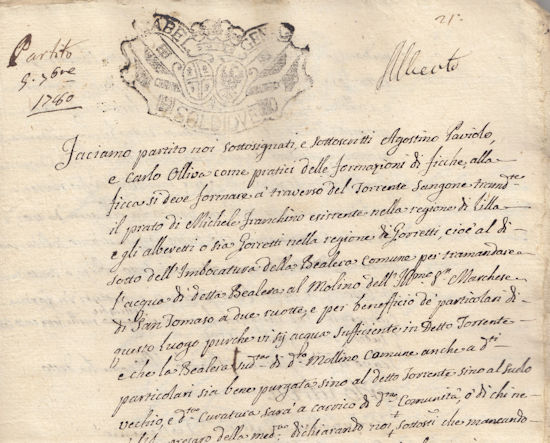 Partito
5. 7bre
1760
21.
Alberto
GABEL GENE
SOLDI DVE
Faciamo partito noi sottosignati, e sottoscritti Agostino Paviolo,
e Carlo Olliva come pratici delle formazioni di ficche, alla
ficca si deve formare à traverso del Torrente Sangone tramd.te
il prato di Michele Franchino esistente nella regione di Villa
e gli alberetti o sia Gorretti nella regione de Gorretti, cioè al di
sotto dell'Imbocatura della Bealera Comune per tramandare
l'acqua di detta Bealera al Molino dell'Ill.mo S.r Marchese
di San Tomaso a due ruotte, e per beneficio de particolari di
questo luogo purche vi sij acqua sufficiente in Detto Torrente
e che la Bealera sud.ta di d.o Mollino Comune anche a d.ti
particolari sia bene purgata sino al detto Torrente sino al suolo
vechio, e d.ta Curatura sarà a carrico di d.ta Comunità, o di chi ne
della med.ma dichiarando noi sottosti che mancando